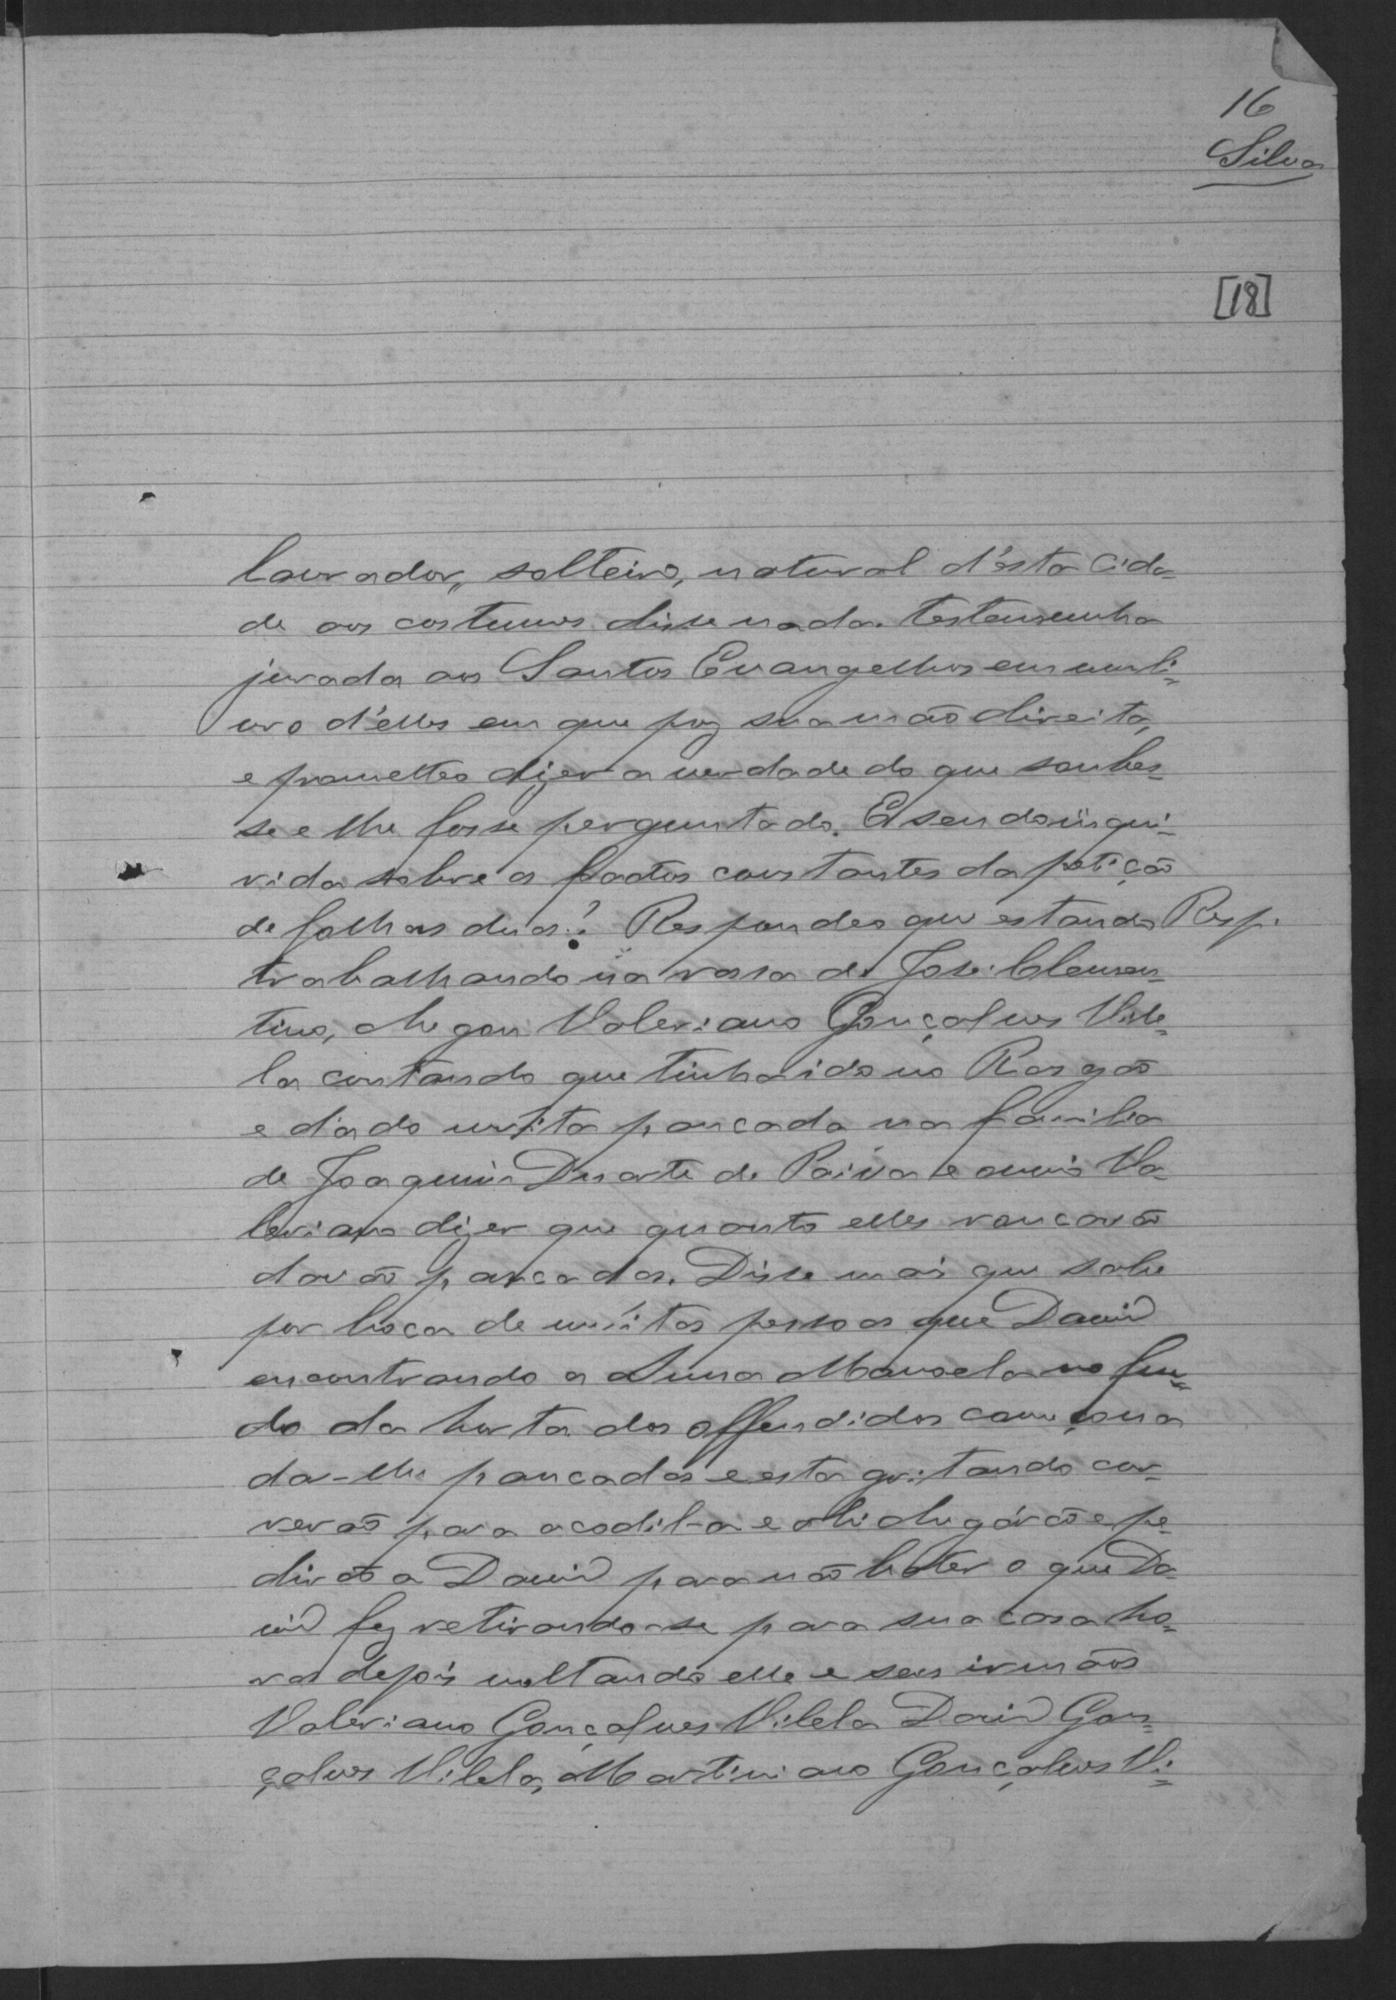 16
Silva
[18]
lavrador, solteiro, natural d'ésta Cida-
de aos costumes disse nada. Testemunha
jurada aos Santos Evangelhos em um li-
vro d'elles em que poz sua mão direita,
e prometteo dizer a verdade do que soubes-
se e lhe fosse perguntado. E sendo inqui-
rida sobre os factos constantes da petição
de folhas duas? Respondeo que estando Resp.
trabalhando na rossa de José Clemen-
tino, chegou Valeriano Gonçalves Vile-
la contando que tinha ido no Rasgão
e dado muita pancada na familia
de Joaquim Duarte de Paiva e ouvio Va-
leriano dizer que quanto elles roncavão
davão pancadas. Disse mais que sabe
por boca de muitas pessoas que David
encontrando a Anna Manoela no fun-
do da horta dos offendidos começou a
dar-lhe pancadas e esta gritando cor-
rerão para acodil-a e ahi chegárão e pe-
dirão a David para não bater o que Da-
vid fez retirando-se para sua casa ho-
ra depois voltando elle e seus irmãos
Valeriano Gonçalves Vilela David Gon-
çalves Vilela, Martiniano Gonçalves Vi-